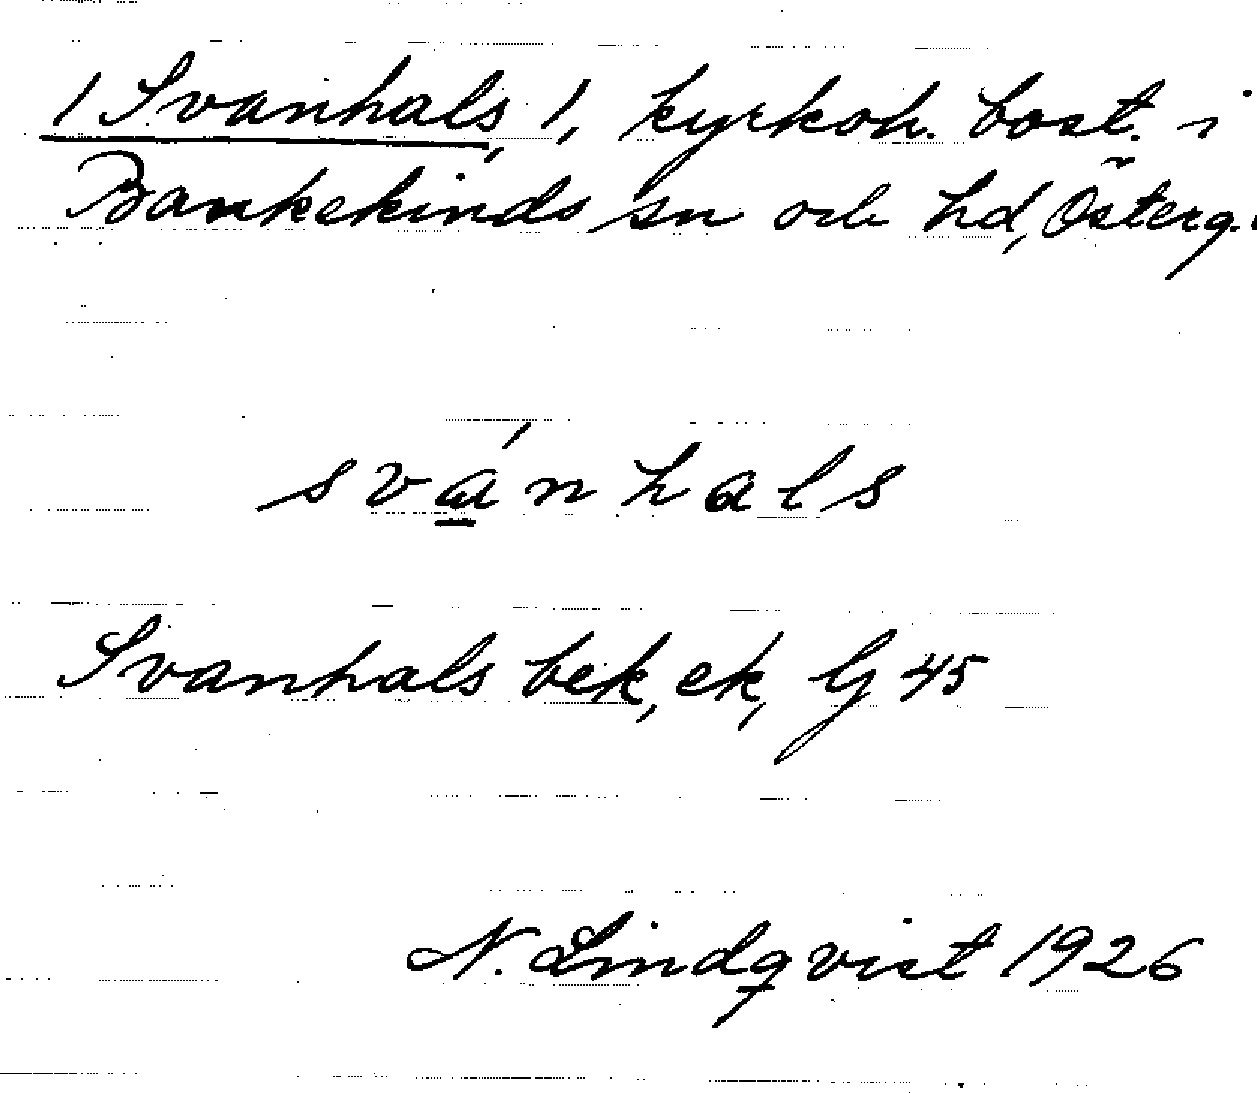 /Svanhals, /, kyrkoh. bost. i
Bankekinds sn och hd, Österg.
svánhals
Svanhals bek, ek, G 45
N. Lindqvist 1926